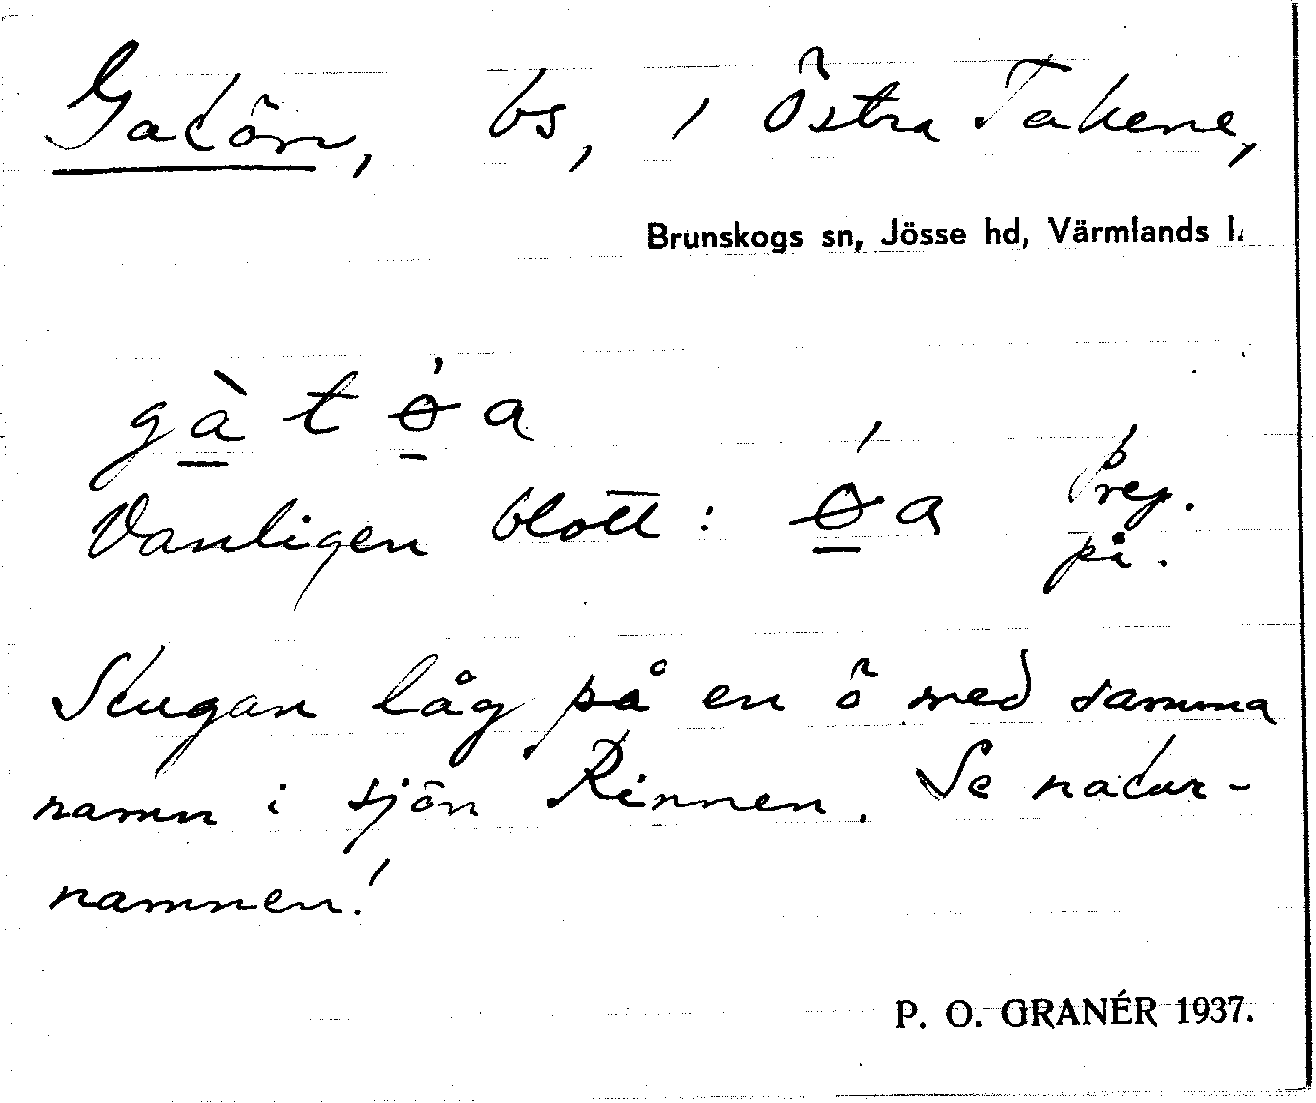 Gatön, bs, i Östra Takene,
Brunskogs sn, Jösse hd, Värmlands l.
gàt ǿa
Vanligen blott: ǿa Prep.
på.
Stugan låg på en ö med samma
namn i sjön Rinnen. Se natur-
namnen!
P. O. GRANÉR 1937.